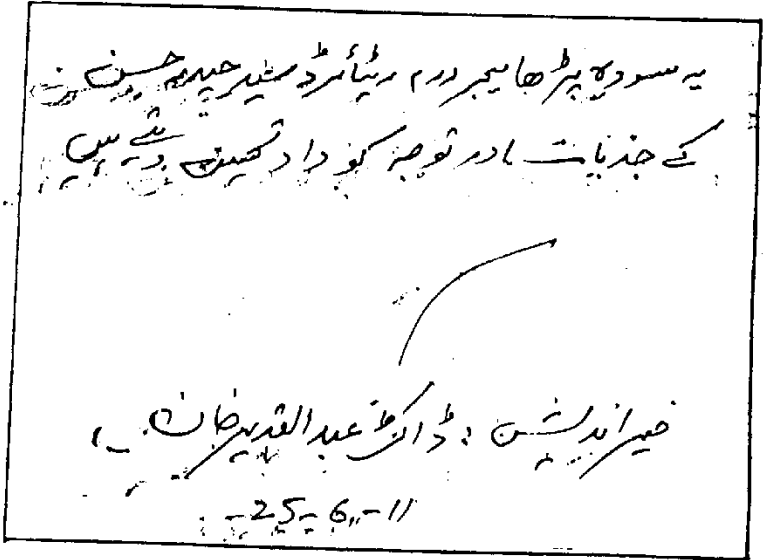 یہ مسودہ پڑھا میجر (ر) ریٹائرڈ سید حیدر حسن
کے جذبات اور توجہ کو داد تحسین دیتے ہیں
خیر اندیش : ڈاکٹر عبدالقدیر خان
25-6-11